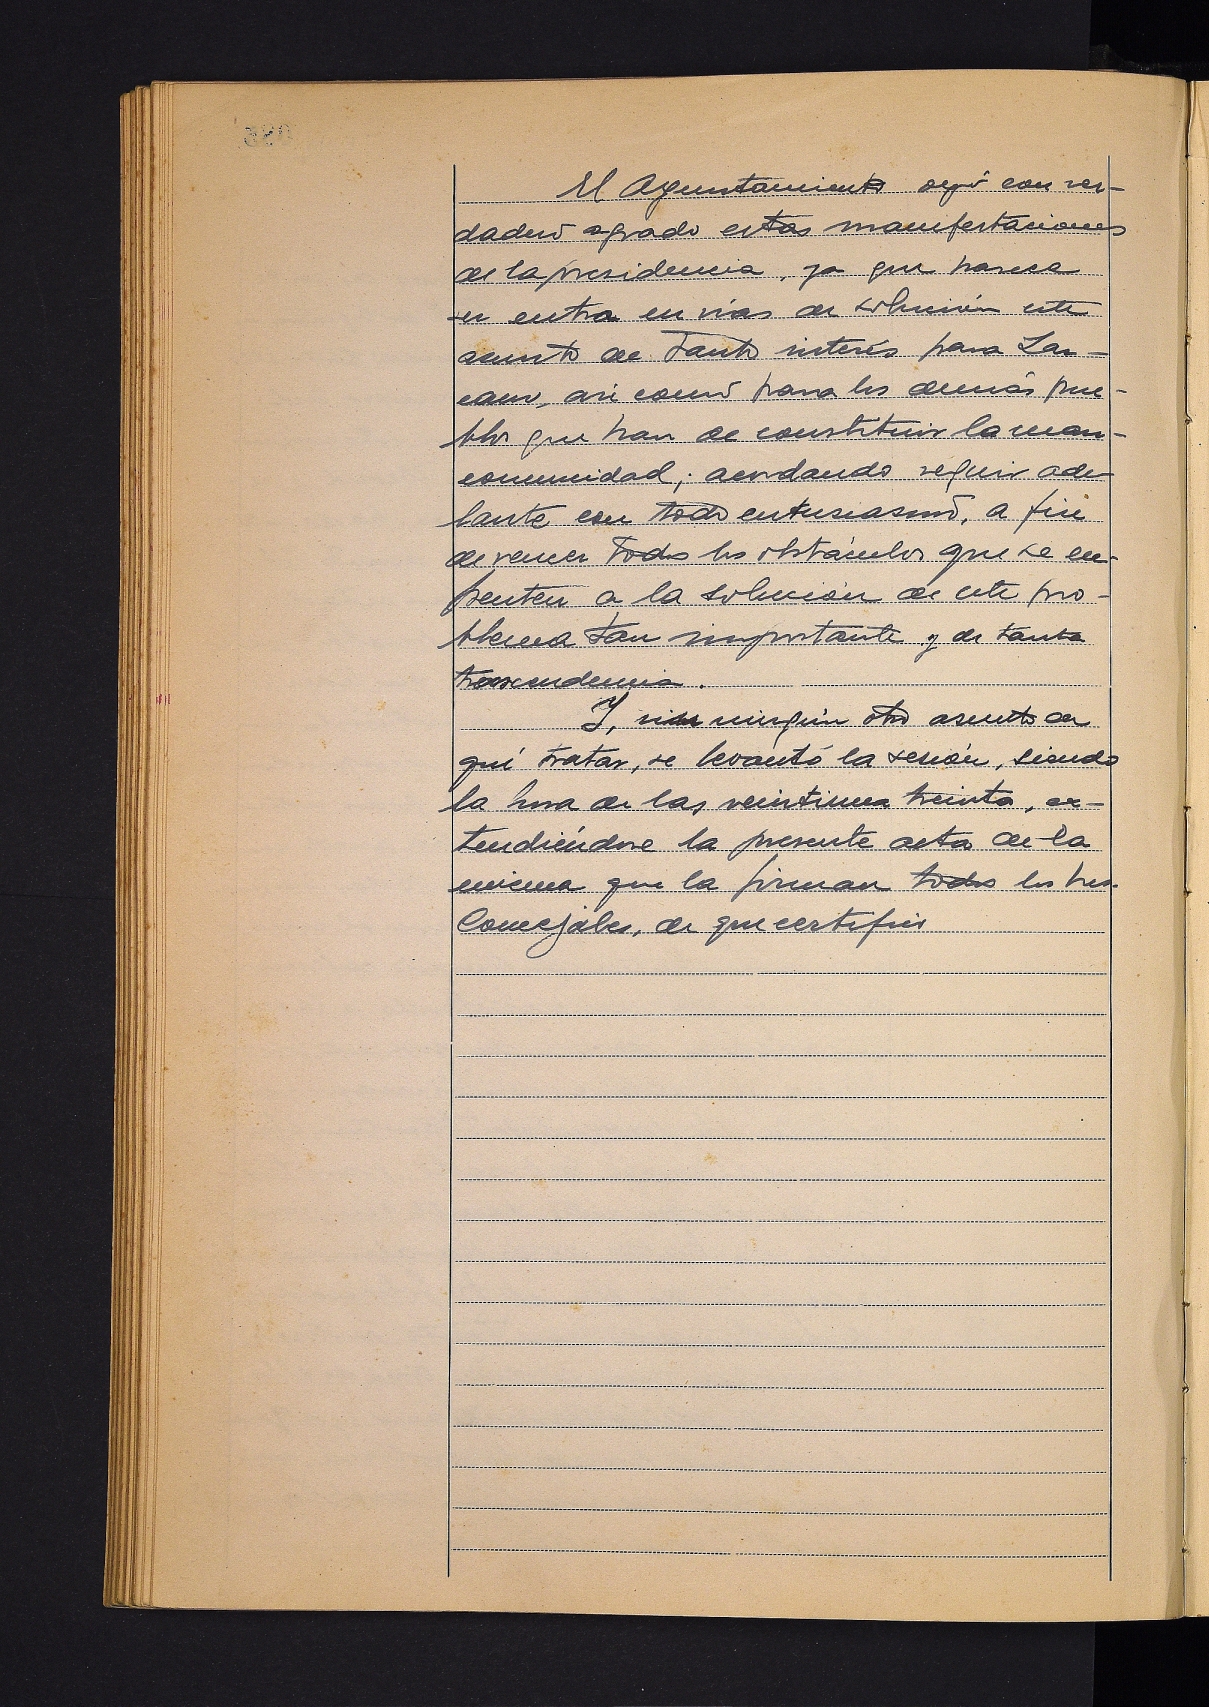 El Ayuntamiento oyó con ver-
dadero agrado estas manifestaciones
de la presidencia, ya que parece
se entra en vías de solución este
asunto de tanto interés para Laz-
cano, así como para los demás pue-
blos que han de constituir la man-
comunidad; acordando seguir ade-
lante con todo entusiasmo, a fin
de vencer todos los obstáculos que se en-
frenten a la solución de este pro-
blema tan importante y de tanta
trascendencia.
Y, sin ningún otro asunto de
qué tratar, se levantó la sesión, siendo
la hora de las veintiuna treinta, ex-
tendiéndose la presente acta de la
misma que la firman todos los tres
Concejales, de que certifico